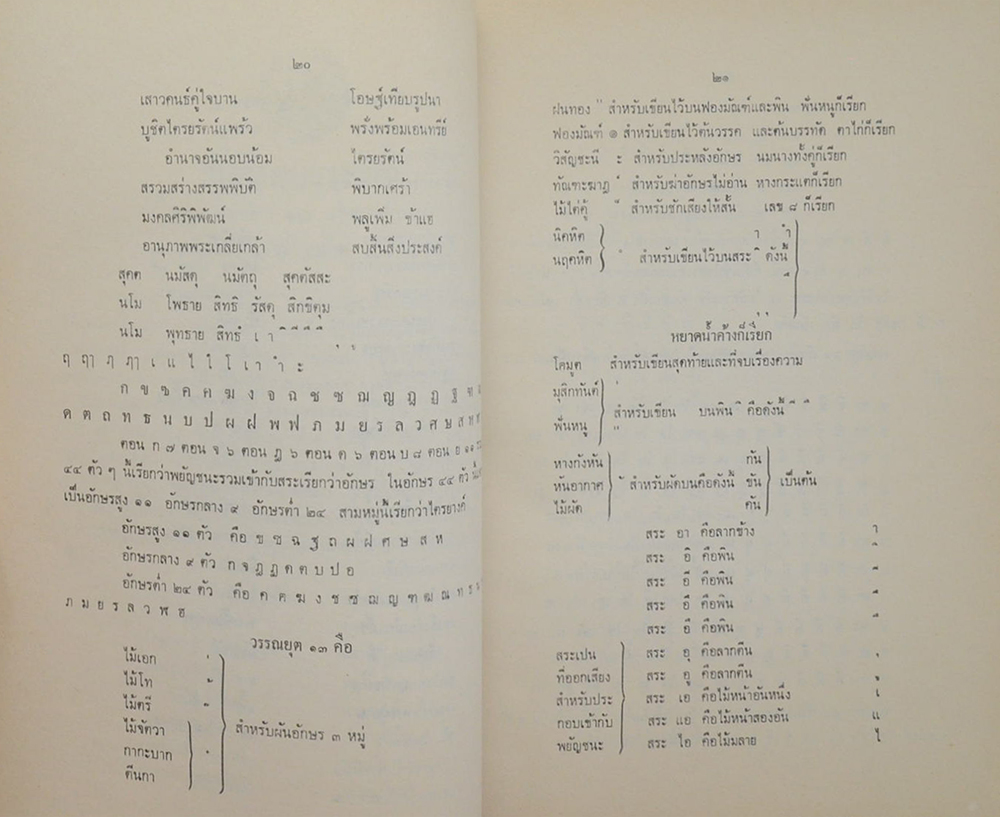 ๒๐
เสาวคนธ์คู่ใจบาน โอษฐ์เทียบรูปนา
บูชิตไตรยรัตน์แพร้ว พรั่งพร้อมเอนทรีย์
อำนาจอันนอบน้อม ไตรยรัตน์
สรวมสร่างสรรพพิบัติ พิบากเศร้า
มงคลศิริพิพัฒน์ พลูเพิ่ม ข้าแฮ
อานุภาพพระเกลี่ยเกล้า สบสิ้นสิ่งประสงค์
สุคต นมัสตุ นมัตถุ สุคตัสสะ
นโม โพธาย สิทธิ รัสตุ สิกขิตุม
นโม พุทธาย สิทธํ เ า ิ ี ึ ื ุ ู
ฤ ฤๅ ฦ ฦๅ เ แ ไ ใ โ เ า ำ ะ
ก ข ฃ ค ฅ ฆ ง จ ฉ ช ซ ฌ ญ ฎ ฏ ฐ ฑ
ด ต ถ ท ธ น บ ป ผ ฝ พ ฟ ภ ม ย ร ล ว ศ ษ ส ห
ตอน ก ๗ ตอน จ ๖ ตอน ฎ ๖ ตอน ด ๖ ตอน บ ๘ ตอน ย ๑๑
๔๔ ตัว ๆ นี้เรียกว่าพยัญชนะรวมเข้ากับสระเรียกว่าอักษร ในอักษร ๔๔ ตัว
เป็นอักษรสูง ๑๑ อักษรกลาง ๙ อักษรต่ำ ๒๔ สามหมู่นี้เรียกว่าไตรยางค์
อักษรสูง ๑๑ ตัว คือ ข ฃ ฉ ฐ ถ ผ ฝ ศ ษ ส ห
อักษรกลาง ๙ ตัว ก จ ฎ ฏ ด ต บ ป อ
อักษรต่ำ ๒๔ ตัว คือ ค ฅ ฆ ง ช ซ ฌ ญ ฑ ฒ ณ ท ธ น
ภ ม ย ร ล ว ฬ ฮ
วรรณยุต ๑๓ คือ
ไม้เอก ่
ไม้โท ้
ไม้ตรี ๊
ไม้จัตวา
กากะบาท ๋ สำหรับผันอักษร ๓ หมู่
ตีนกา
๒๑
ฝนทอง " สำหรับเขียนไว้บนฟองมัณฑ์และพิน พั่นหนูก็เรียก
ฟองมัณฑ์ ๏ สำหรับเขียนไว้ต้นวรรค และต้นบรรทัด ตาไก่ก็เรียก
วิสัญชะนี ะ สำหรับประหลังอักษร นมนางทั้งคู่ก็เรียก
ทัณฑะฆาฏ ์ สำหรับฆ่าอักษรไม่อ่าน หางกระแตก็เรียก
ไม้ไต่คู้ ็ สำหรับชักเสียงให้สั้น เลข ๘ ก็เรียก
นิคหิต า ำ
นฤคหิต ํ สำหรับเขียนไว้บนสระ ิ ดังนี้
ึ
หยาดน้ำค้างก็เรียก
โคมูต สำหรับเขียนสุดท้ายและที่จบเรื่องความ
มุสิกทันต์ '
สำหรับเขียน บนพิน ิ คือดังนี้ ี ื
พั่นหนู "
หางกังหัน กัน
หันอากาศ ั สำหรับผัดบนคือดังนี้ ขัน เป็นต้น
ไม้ผัด คัน
สระ อา คือลากข้าง า
สระ อิ คือพิน ิ
สระ อี คือพิน ี
สระ อึ คือพิน ึ
สระ อื คือพิน ื
สระเปน สระ อุ คือลากตีน ุ
ที่ออกเสียง สระ อู คือลากตีน ู
สำหรับประ สระ เอ คือไม้หน้าอันหนึ่ง เ
กอบเข้ากับ สระ แอ คือไม้หน้าสองอัน แ
พยัญชนะ สระ ไอ คือไม้มลาย ไ